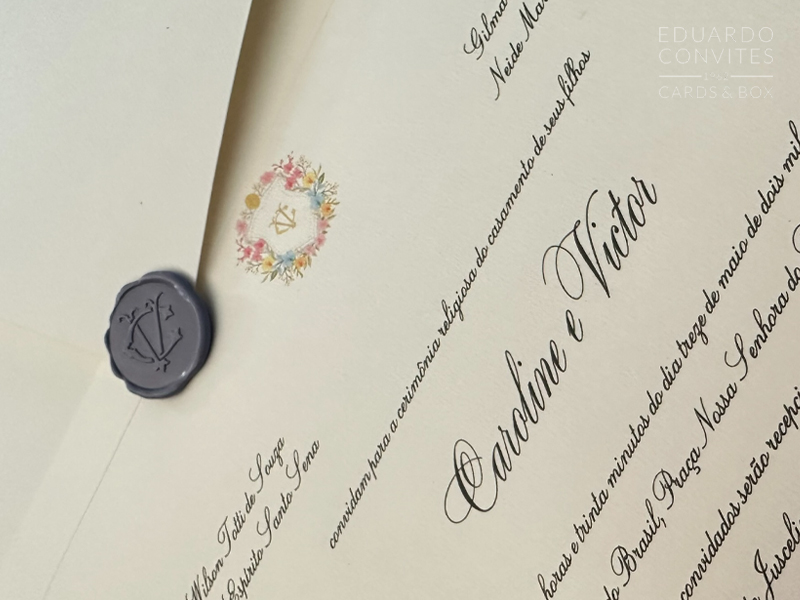 EDUARDO
CONVITES
INC
CARDS & BOX
Gilma
Neide Mar
Wilson Totti de Souza
Espírito Santo Sena
convidam para a cerimônia religiosa do casamento de seus filhos
Caroline e Victor
horas e trinta minutos do dia treze de maio de dois mil
do Brasil, Praça Nossa Senhora do
convidados serão recepci
Juscelin
CV
CV